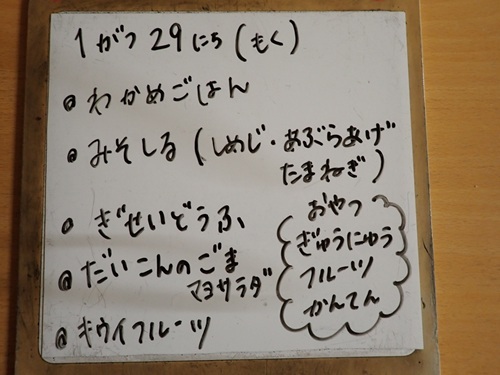 1がつ29にち(もく)
◎わかめごはん
◎みそしる(しめじ・あぶらあげ
たまねぎ)
◎ぎせいどうふ
◎だいこんのごま
マヨサラダ
◎キウイフルーツ
おやつ
ぎゅうにゅう
フルーツ
かんてん